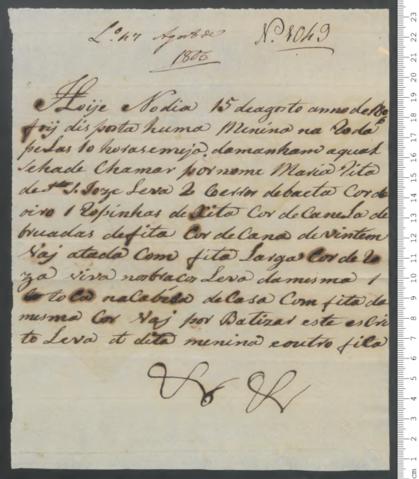 Lo 47 Agosto de
1806
No. 1049
Hoije No dia 15 de agosto anno de 180
foij disposta huma Menina na Roda
pelas 10 horas e meja da manham a qual
se ha de Chamar por nome Maria Rita
de S. Joze Leva 2 de baeta Cor de
oiro 1 Ropinhas de Xita Cor de Canela de
bruadas de fita Cor de Cana de vintem
Vaj atada Com fita Larga Cor de Ro
za viva no braco Leva da mesma 1
na Cabesa de Casa Com fita da
mesma Cor Vaj por Batizar este escri
to Leva a dita menina e outro fica